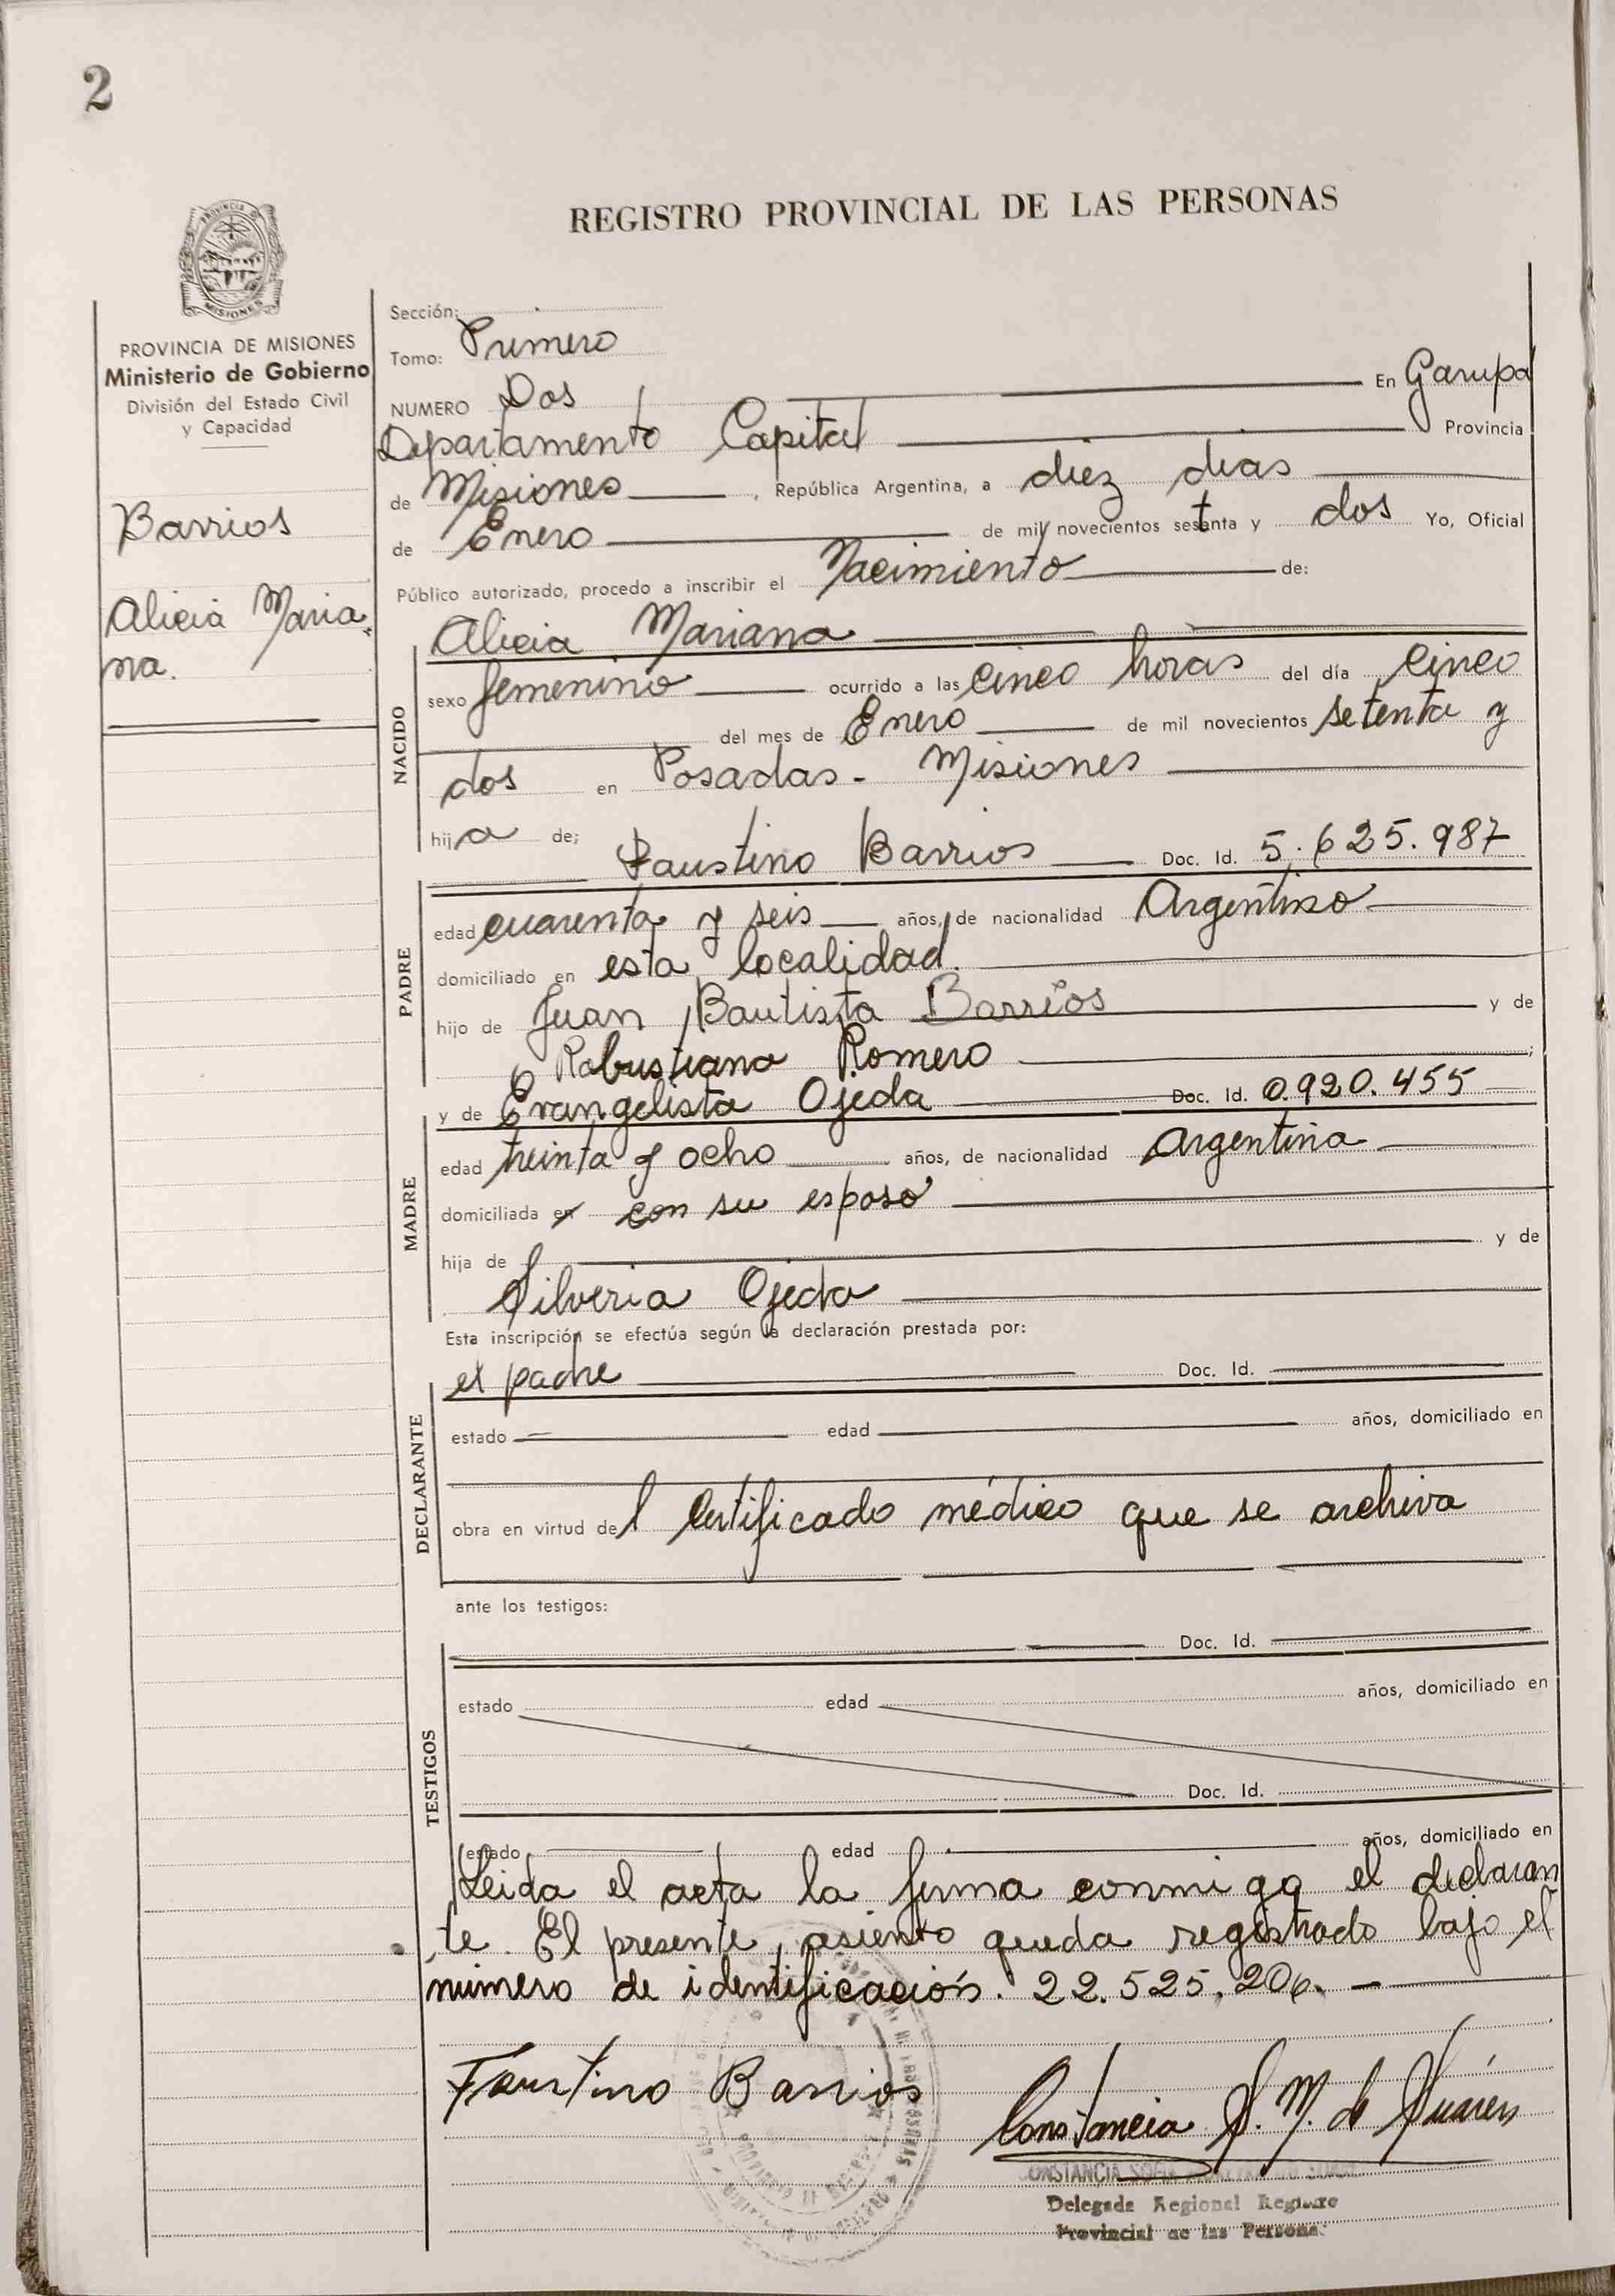 2
REGISTRO PROVINCIAL DE LAS PERSONAS
MISIONES
PROVINCIA DE MISIONES
Ministerio de Gobierno
División del Estado Civil
y Capacidad
Barrios
Alicia Maria
na.
Sección:
Tomo: Primero
NUMERO Dos En Garupa
Departamento Capital Provincia
de Misiones, República Argentina, a diez dias
de Enero de mil novecientos setenta y dos Yo, Oficial
Público autorizado, procedo a inscribir el Nacimiento de:
Alicia Mariana
NACIDO
sexo femenino ocurrido a las cinco horas del día cinco
del mes de Enero de mil novecientos setenta y
dos en Posadas - Misiones
hija de;
Faustino Barrios Doc. Id. 5.625.987
PADRE
edad cuarenta y seis años, de nacionalidad Argentino
domiciliado en esta localidad.
hijo de Juan Bautista Barrios y de
Robustiana Romero ;
y de Evangelista Ojeda Doc. Id. 0.920.455
MADRE
edad treinta y ocho años, de nacionalidad argentina
domiciliada en con su esposo
hija de y de
Silveria Ojeda
Esta inscripción se efectúa según la declaración prestada por:
el padre Doc. Id.
DECLARANTE
estado edad años, domiciliado en
obra en virtud del Certificado médico que se archiva
ante los testigos:
Doc. Id.
TESTIGOS
estado edad años, domiciliado en
Doc. Id.
estado edad años, domiciliado en
Leida el acta la firma conmigo el declaran
te. El presente asiento queda registrado bajo el
número de identificación. 22.525.206.
Faustino Barrios
Constancia S. M. de Suárez
CONSTANCIA
Delegada Regional Registro
Provincial de las Personas